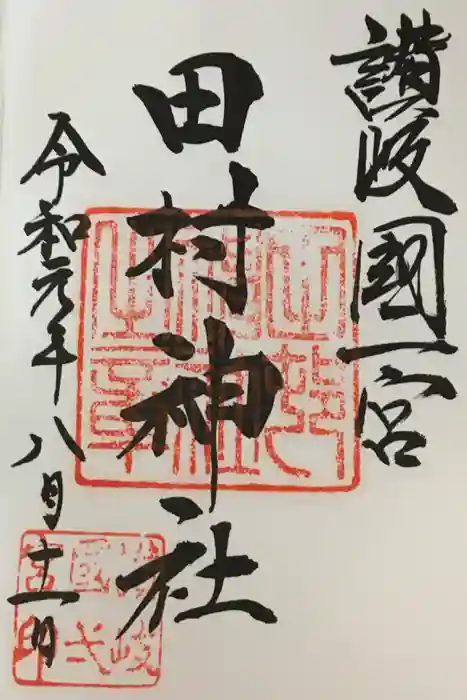 讃岐國一宮
田村神社
令和元年八月十一日
讃岐
國弌
宮印